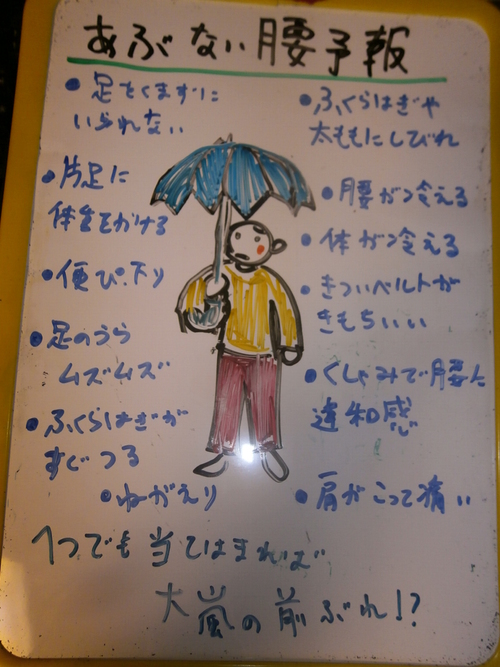 あぶない腰予報
• 足をくまずに
いられない
• 片足に
体重をかける
• 便ぴ.下り
• 足のうら
ムズムズ
• ふくらはぎが
すぐつる
• ねがえり
• ふくらはぎや
太ももにしびれ
• 腰が冷える
• 体が冷える
• きついベルトが
きもちいい
• くしゃみで腰に
違和感
• 肩がこって痛い
1つでも当てはまれば
大嵐の前ぶれ!?